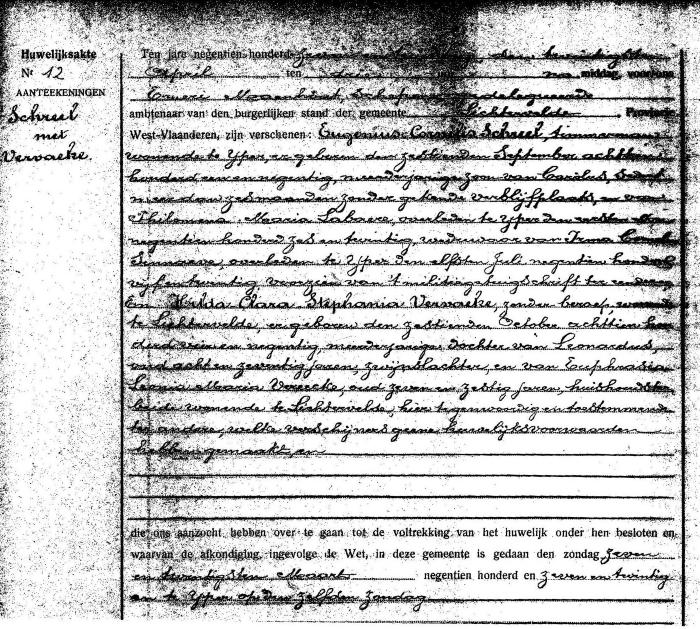 Huwelijksakte
Nr 12
AANTEEKENINGEN
Schreel
met
Vervaeke.
Ten jare negentien honderd zeven en twintig, den twintigsten
April ten drie ure na middag, voor ons
Omeri Schepen gedelegueerde
ambtenaar van den burgerlijken stand der gemeente Lichtervelde Provincie
West-Vlaanderen, zijn verschenen: Eugenius Cornelis Schreel, timmerman
wonende te Yper, er geboren den zestienden September achttien
honderd een en negentig, meerderjarige zoon van Carolus, sedert
meer dan zes maanden zonder gekende verblijfplaats, en van
Philomena Maria Labaere, overleden te Yper den
negentien honderd zes en twintig, weduwaar van Irma
Synaeve, overleden te Yper den elfsten Juli negentien honderd
vijf en twintig, voorzien van 't militiegetuigschrift ter
En Hilda Clara Stephania Vervaeke, zonder beroep, wonende
te Lichtervelde, er geboren den zestienden October achttien hon
derd vier en negentig, meerderjarige dochter van Leonardus,
oud acht en zeventig jaren, zwijnslachter, en van Euphrasia
Leonia Maria Vereecke, oud zeven en zestig jaren, huishoudster
beide wonende te Lichtervelde, hier tegenwoordig en toestemmende
ten andere, welke verschijners geene huwelijksvoorwaarden
hebben gemaakt, en
die ons aanzocht hebben over te gaan tot de voltrekking van het huwelijk onder hen besloten en
waarvan de afkondiging, ingevolge de Wet, in deze gemeente is gedaan den zondag zeven
en twintigsten Maart negentien honderd en zeven en twintig
en te Yper op den zelfden zondag